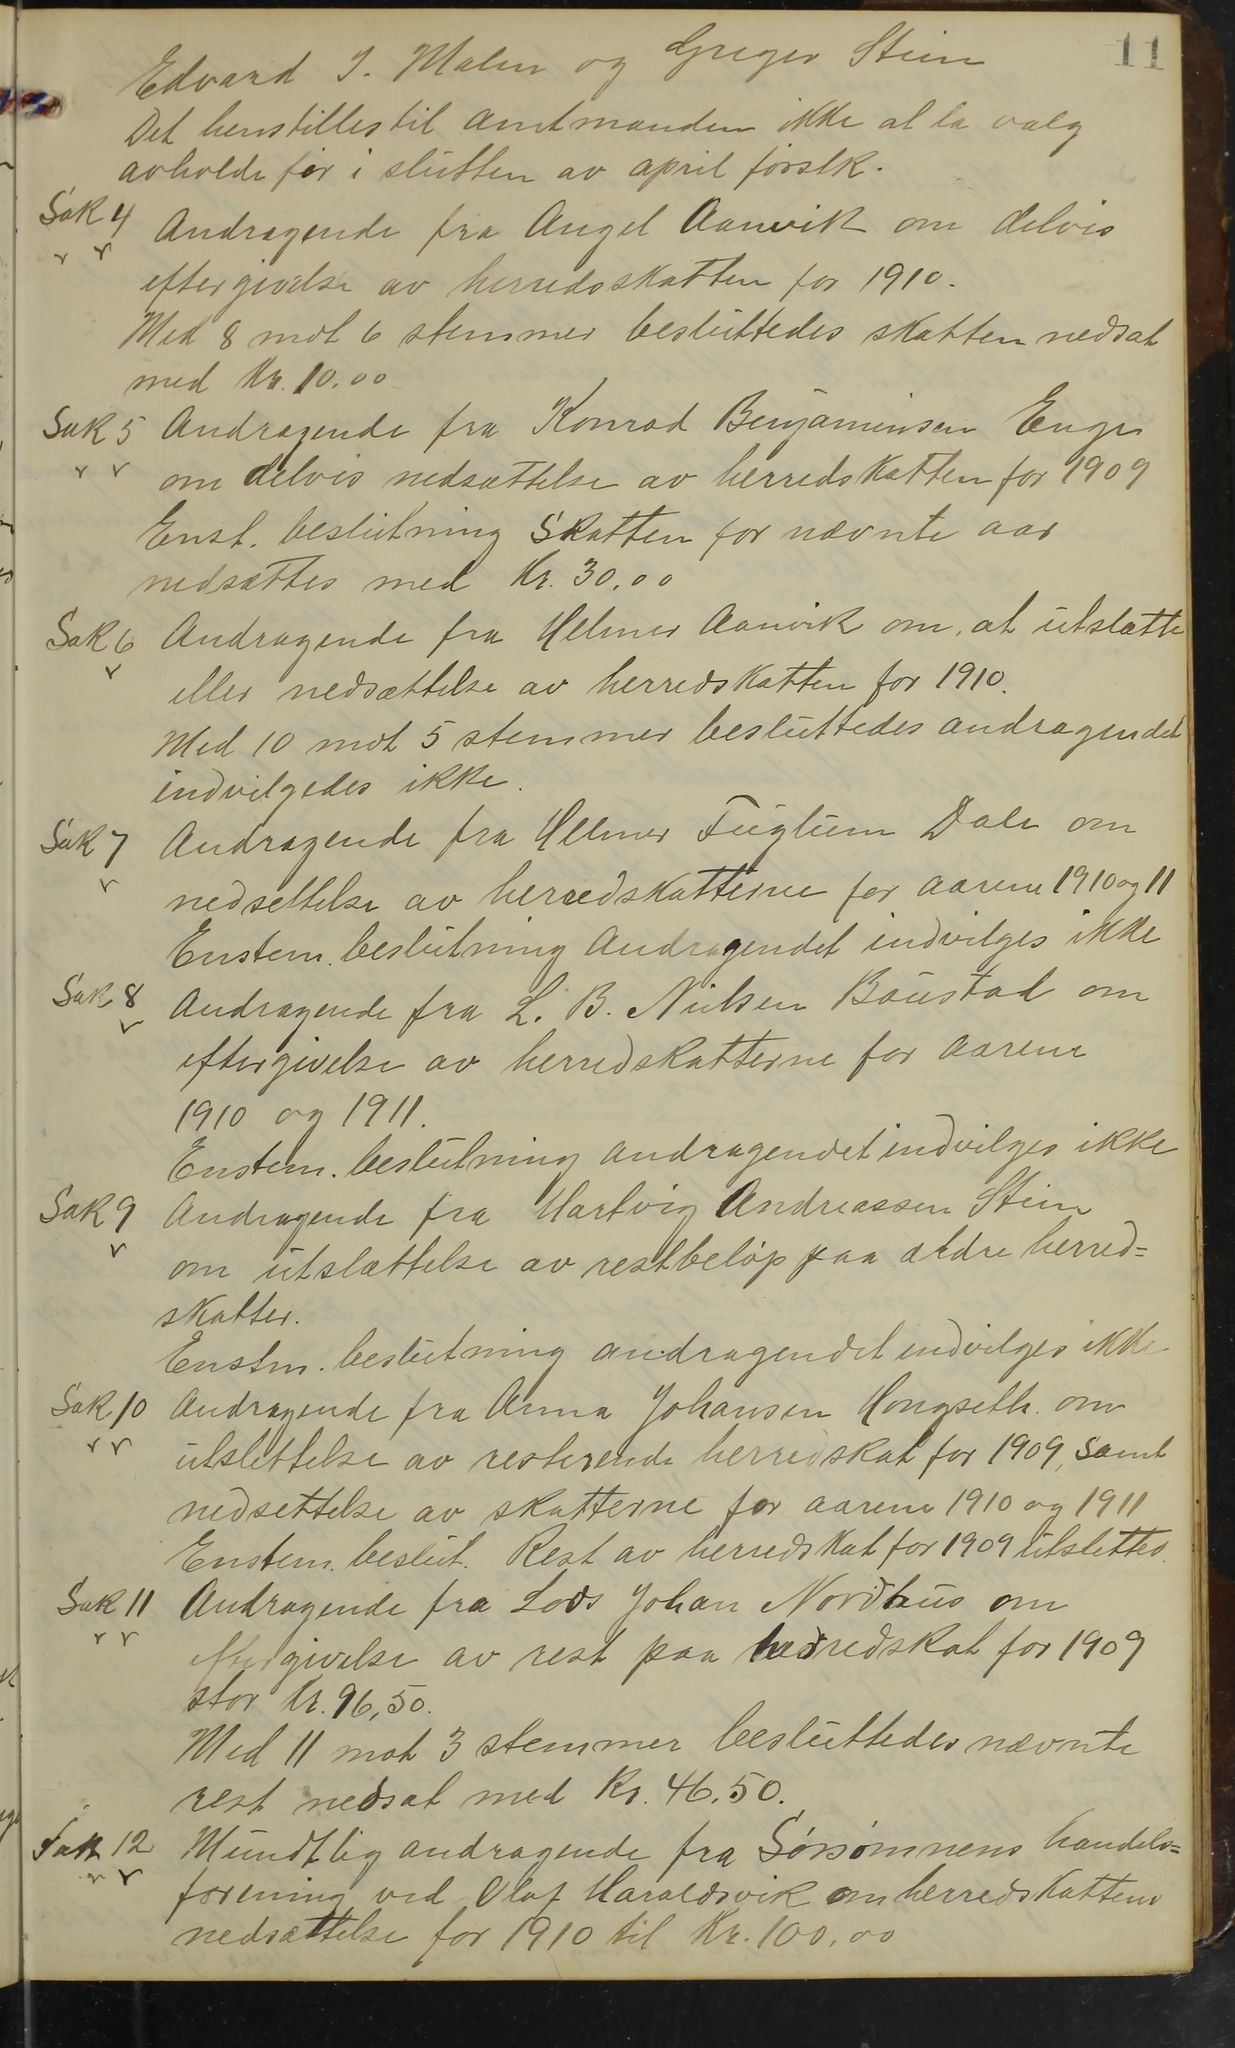 11
Edvard J. Malm og Greger Stein
Det henstilles til amtmanden ikke at la valg
avholde før i slutten av april førstk.
Sak 4 Andragende fra Angel Aanvik om delvis
eftergivelse av herredsskatten for 1910.
Med 8 mot 6 stemmer besluttedes skatten nedsat
med Kr. 10.00
Sak 5 Andragende fra Konrad Benjaminsen Enge
om delvis nedsættelse av herredskatten for 1909
Enst. beslutning Skatten for nævnte aar
nedsættes med Kr. 30.00
Sak 6 Andragende fra Helmer Aanvik om, at utslætte
eller nedsættelse av herredskatten for 1910.
Med 10 mot 5 stemmer besluttedes andragendet
indvilgedes ikke.
Sak 7 Andragende fra Helmer Fuglum Dale om
nedsettelse av herredskatterne for aarene 1910 og 11
Enstem. beslutning Andragendet indvilges ikke
Sak 8 Andragende fra L. B. Nielsen Baustad om
eftergivelse av herredskatterne for aarene
1910 og 1911.
Enstem. beslutning andragendet indvilges ikke
Sak 9 Andragende fra Hartvig Andreassen Stein
om utslættelse av restbeløp paa ældre herred=
skatter.
Enstm. beslutning andragendet indvilges ikke
Sak 10 Andragende fra Anna Johansen Hongseth. om
utslettelse av resterende herredskat for 1909, samt
nedsettelse av skatterne for aarene 1910 og 1911
Enstem. beslut. Rest av herredskat for 1909 utslettes.
Sak 11 Andragende fra Lods Johan Nordhus om
eftergivelse av rest paa herredskat for 1909
stor Kr. 96,50.
Med 11 mot 3 stemmer besluttedes nævnte
rest nedsat med Kr. 46.50.
Sak 12 Mundtlig andragende fra Sørsømnens handels=
forening ved Olaf Haraldsvik om herredskattens
nedsættelse for 1910 til Kr. 100.00